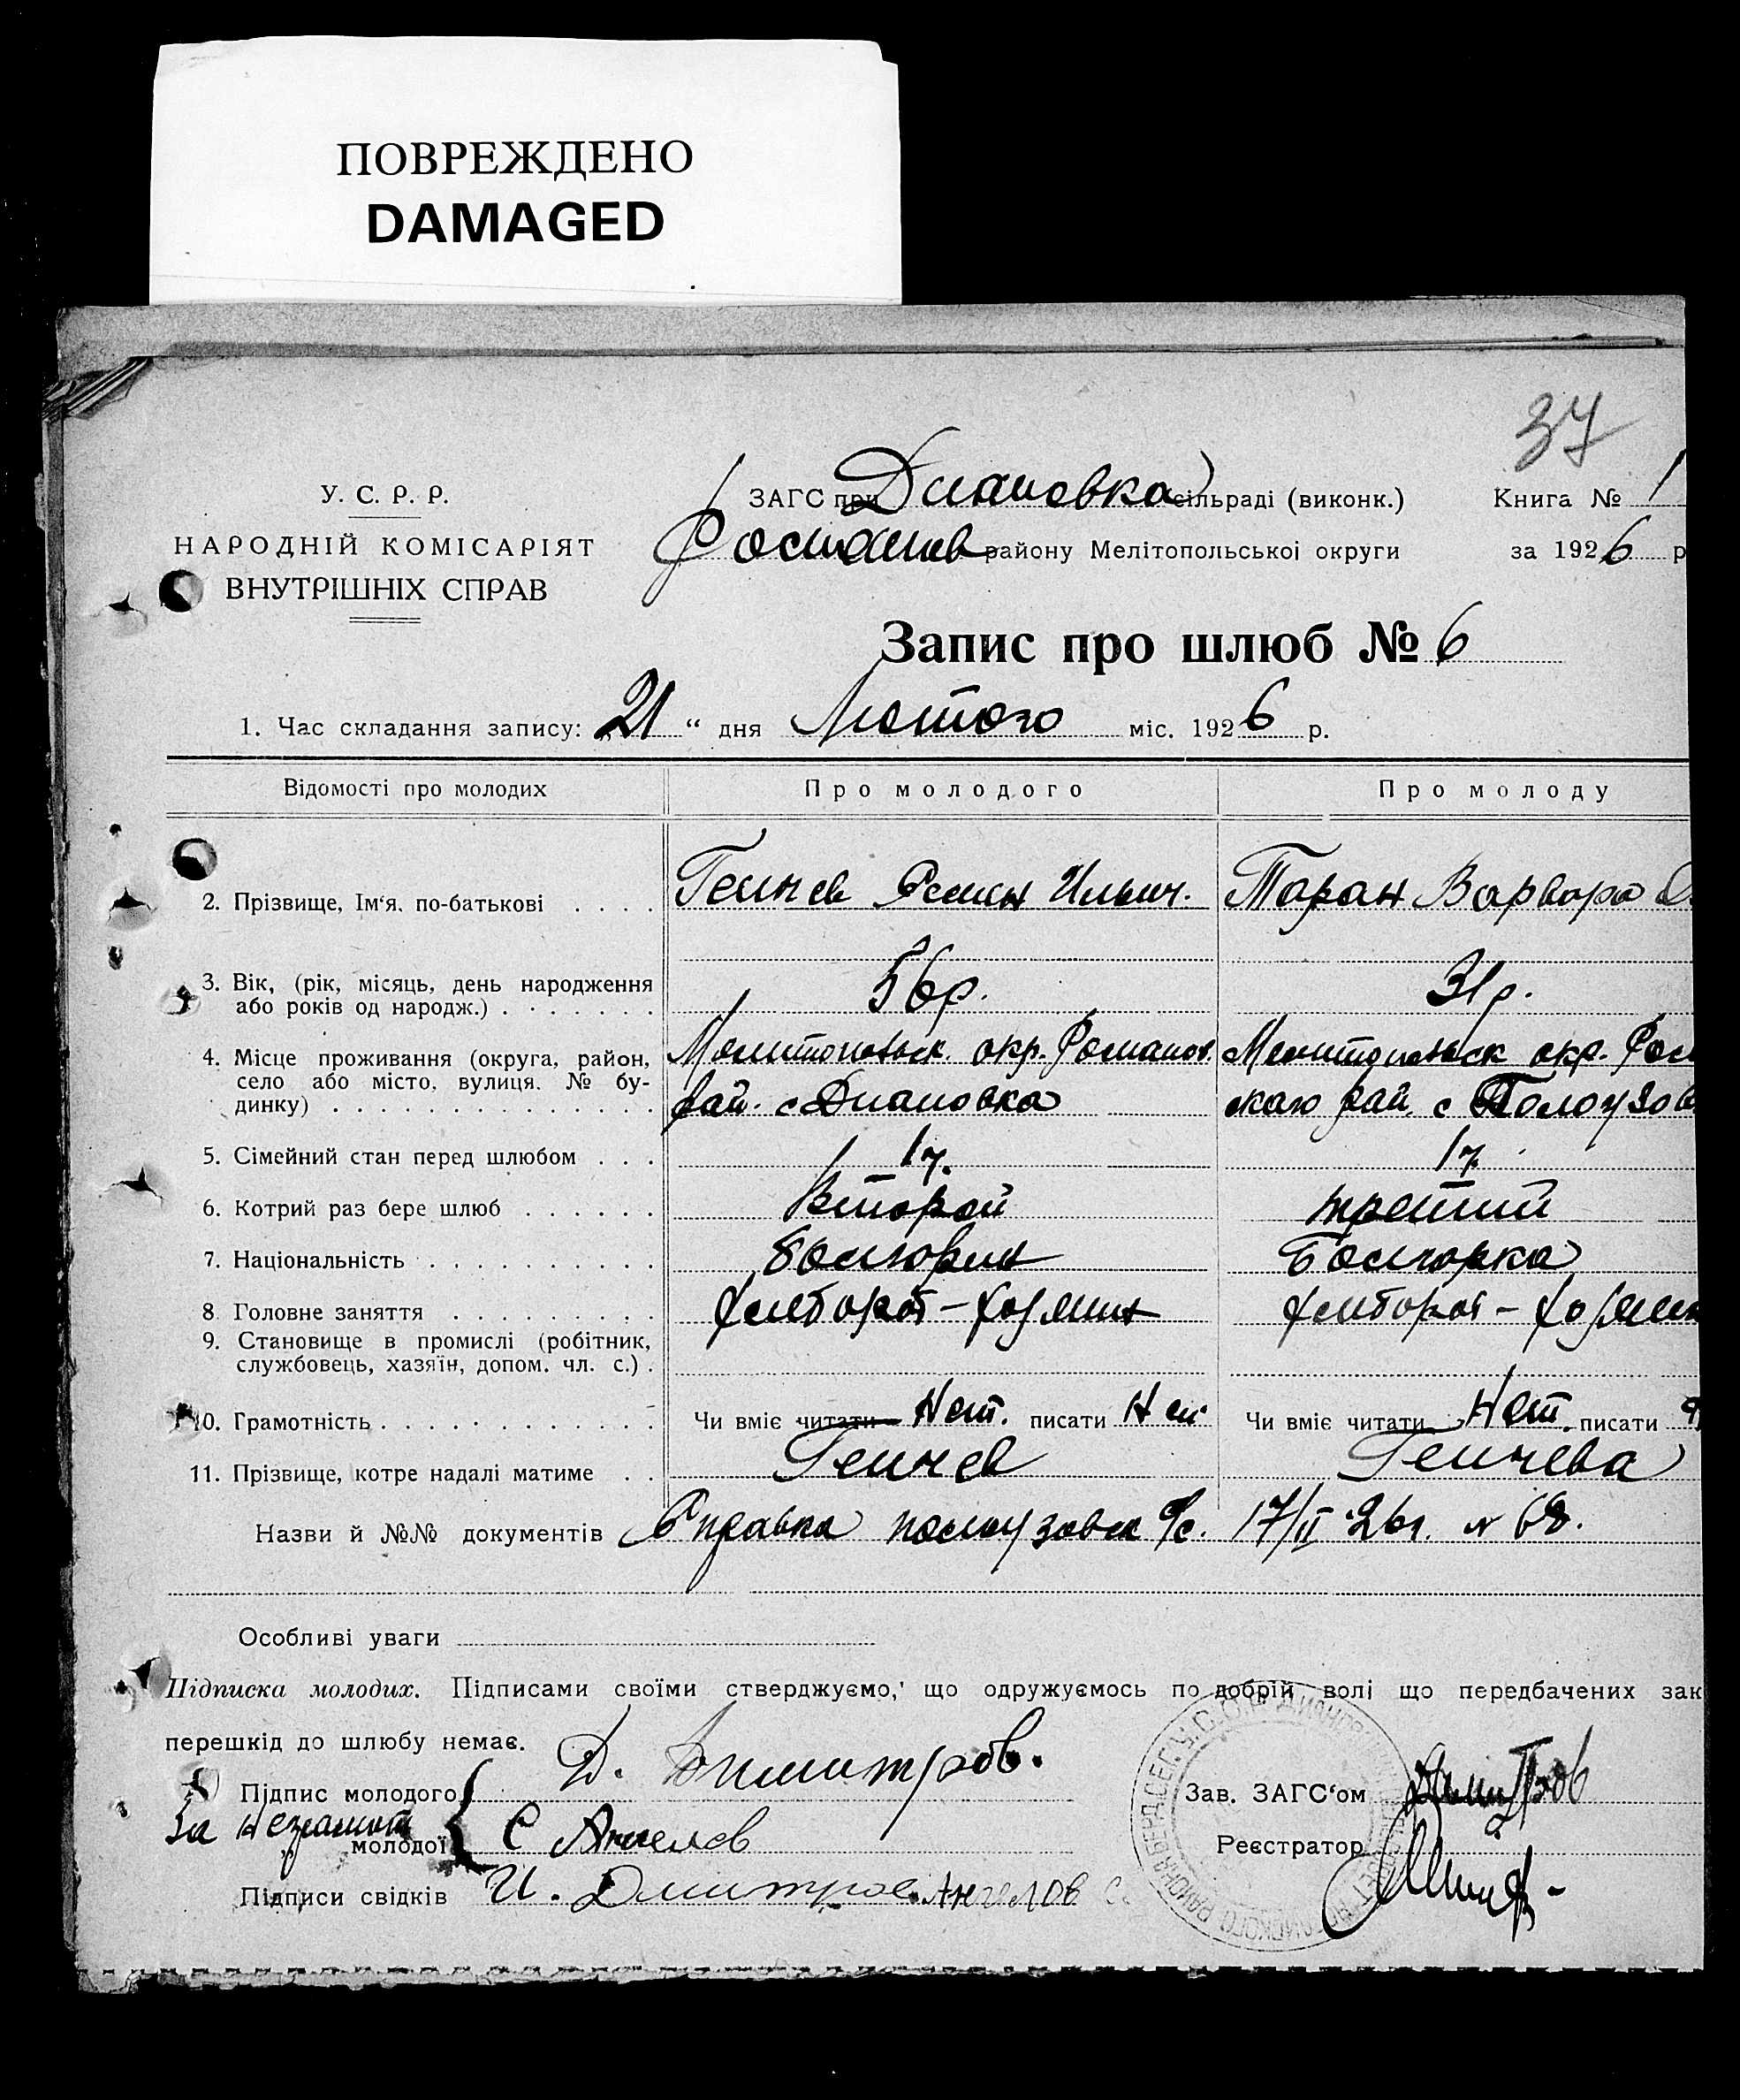 ПОВРЕЖДЕНО
DAMAGED
37
У. С. Р. Р.
НАРОДНІЙ КОМІСАРІЯТ
ВНУТРІШНІХ СПРАВ
ЗАГС при Диановка сільраді (виконк.)
Романов району Мелітопольської округи
Книга № 1
за 1926 р
Запис про шлюб № 6
1. Час складання запису: „21“ дня Лютого міс. 1926 р.
Відомості про молодих Про молодого Про молоду
2. Прізвище, Ім'я, по-батькові . . . . Генчев Семен Ильич. Таран Варвара
3. Вік, (рік, місяць, день народження
або років од народж.) . . . . . . . 56 р. 31 р.
4. Місце проживання (округа, район, Мелитопольск. окр. Романов. Мелитопольск окр. Ром
село або місто, вулиця, № бу-
динку) . . . . . . . . . . . . . рай. с Диановка скаго рай с Полоузов
5. Сімейний стан перед шлюбом . . .
6. Котрий раз бере шлюб . . . . . . Второй третий
7. Національність . . . . . . . . . . Болгарин Болгарка
8 Головне заняття . . . . . . . . . Хлебороб –  Хлебороб –
9. Становище в промислі (робітник,
службовець, хазяїн, допом. чл. с.) .
10. Грамотність . . . . . . . . . . . . Чи вміє читати Нет. писати Нет Чи вміє читати Нет. писати
11. Прізвище, котре надалі матиме . . Генчев Генчева
Назви й №№ документів Справка с/с. 17/II 26 г. № 68.
Особливі уваги
Підписка молодих. Підписами своїми стверджуємо, що одружуємось по добрій волі що передбачених зак
перешкід до шлюбу немає.
Підпис молодого Д. Димитров.
За неграмот
„ молодої С Ангелов
Підписи свідків И. Дмитров. Ангелов С
Зав. ЗАГС'ом Димитров
Реєстратор